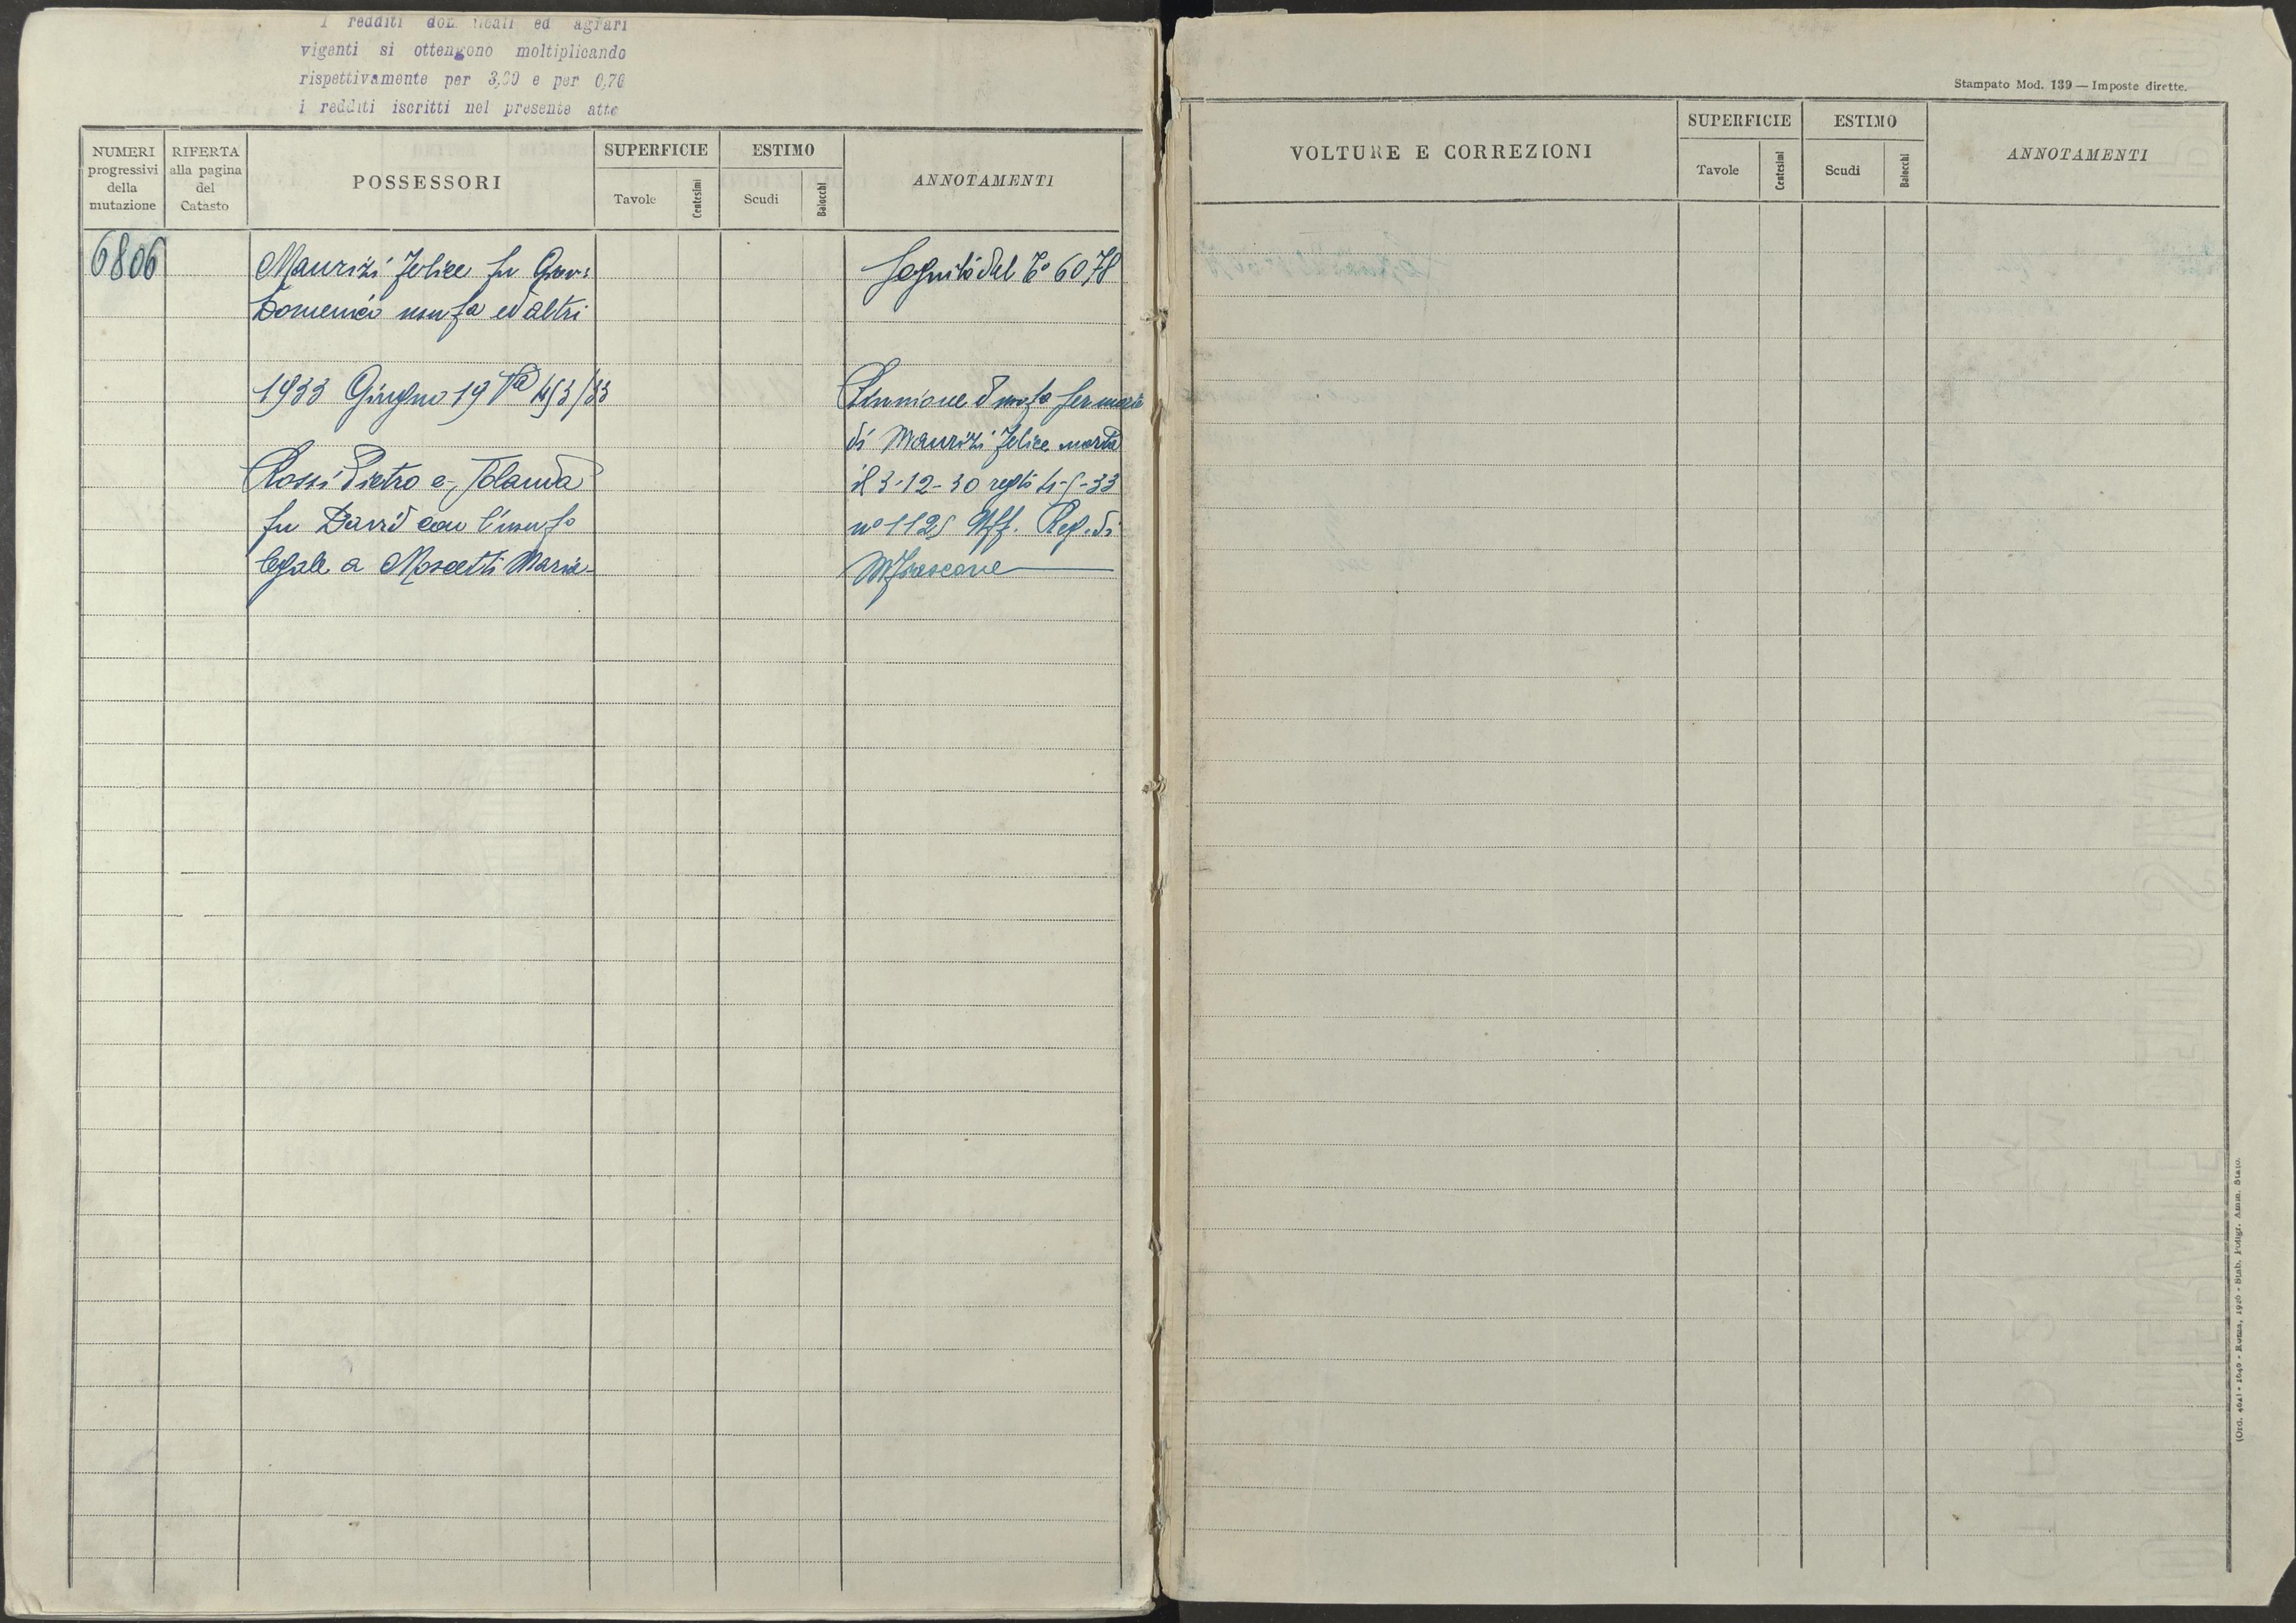 I redditi dominicali ed agrari
vigenti si ottengono moltiplicando
rispettivamente per 3,00 e per 0,70
i redditi iscritti nel presente atto
NUMERI
progressivi
della
mutazione
RIFERTA
alla pagina
del
Catasto
POSSESSORI
SUPERFICIE
Tavole
Centesimi
ESTIMO
Scudi
Baiocchi
ANNOTAMENTI
6806
Maurizi Felice fu Giov:
Domenico usuf.a ed altri
Seguito del T.o 6078
1933 Giugno 19 V.a 143/33
Rossi Pietro e Jolanda
fu David con l'usuf.o
legale a Moscetti Maria
Riunione d'usuf.o per morte
di Maurizi Felice morta
il 3-12-30 reg.to 4-5-33
n° 1125 Uff. Reg. di
Mfiascone
Stampato Mod. 139 — Imposte dirette.
VOLTURE E CORREZIONI
SUPERFICIE
Tavole
Centesimi
ESTIMO
Scudi
Baiocchi
ANNOTAMENTI
Roma, 1926 - Stab. Poligr. Amm. Stato.